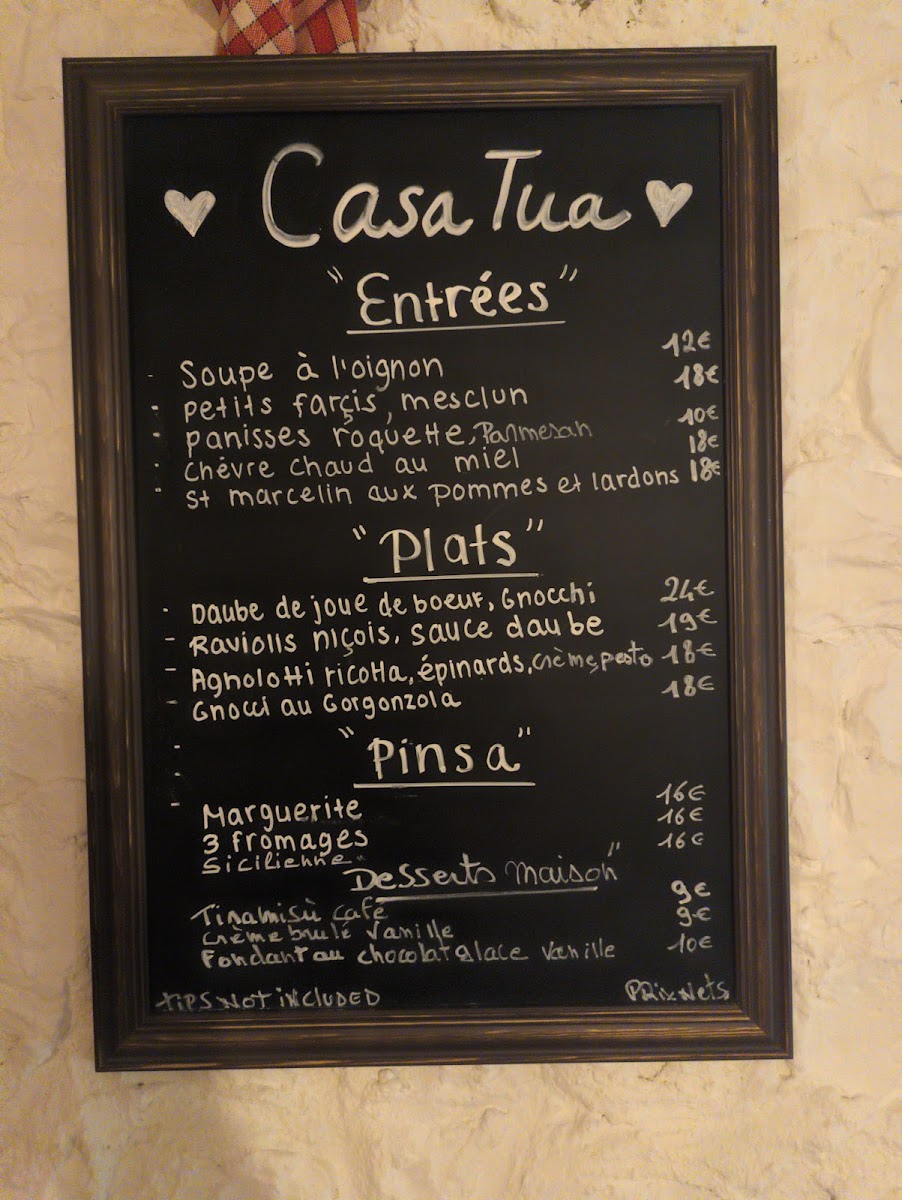 Casa Tua
"Entrées"
- Soupe à l'oignon 12€
- Petits farçis, mesclun 18€
- panisses roquette, Parmesan 10€
- Chèvre chaud au miel 18€
- St marcelin aux pommes et lardons 18€
"Plats"
- Daube de joue de boeuf, Gnocchi 24€
- Raviolis niçois, sauce daube 19€
- Agnolotti ricotta, épinards, crème, pesto 18€
- Gnocci au Gorgonzola 18€
"Pinsa"
- Marguerite 16€
- 3 fromages 16€
- Sicilienne 16€
"Desserts maison"
Tiramisù café 9€
crème brulé vanille 9€
Fondant au chocolat glace vanille 10€
TIPS NOT INCLUDED PRix Nets